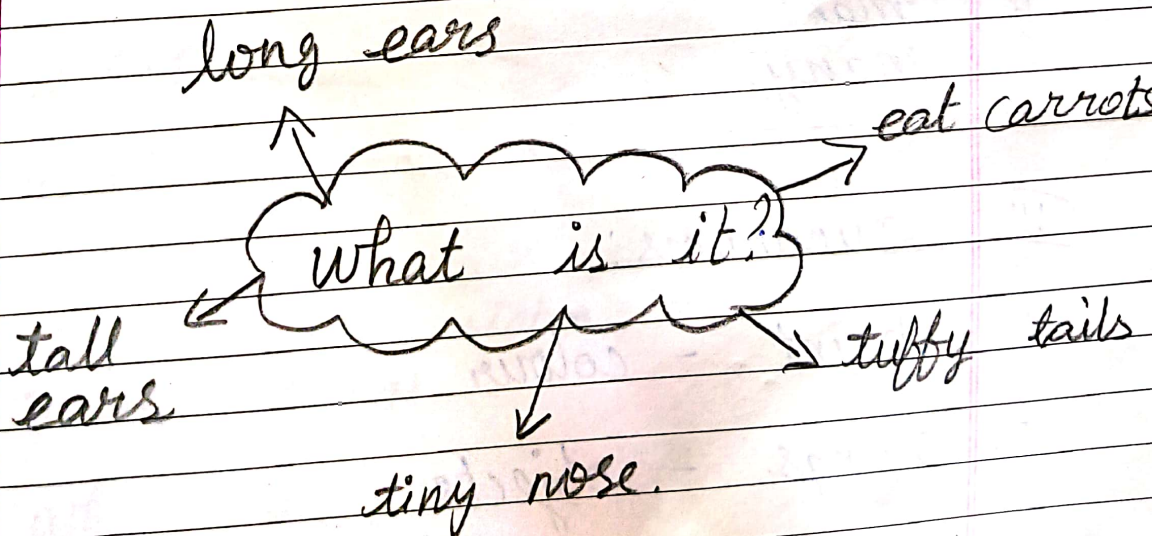 long ears
eat carrots
What is it?
tall
ears
tuffy tails
tiny nose.